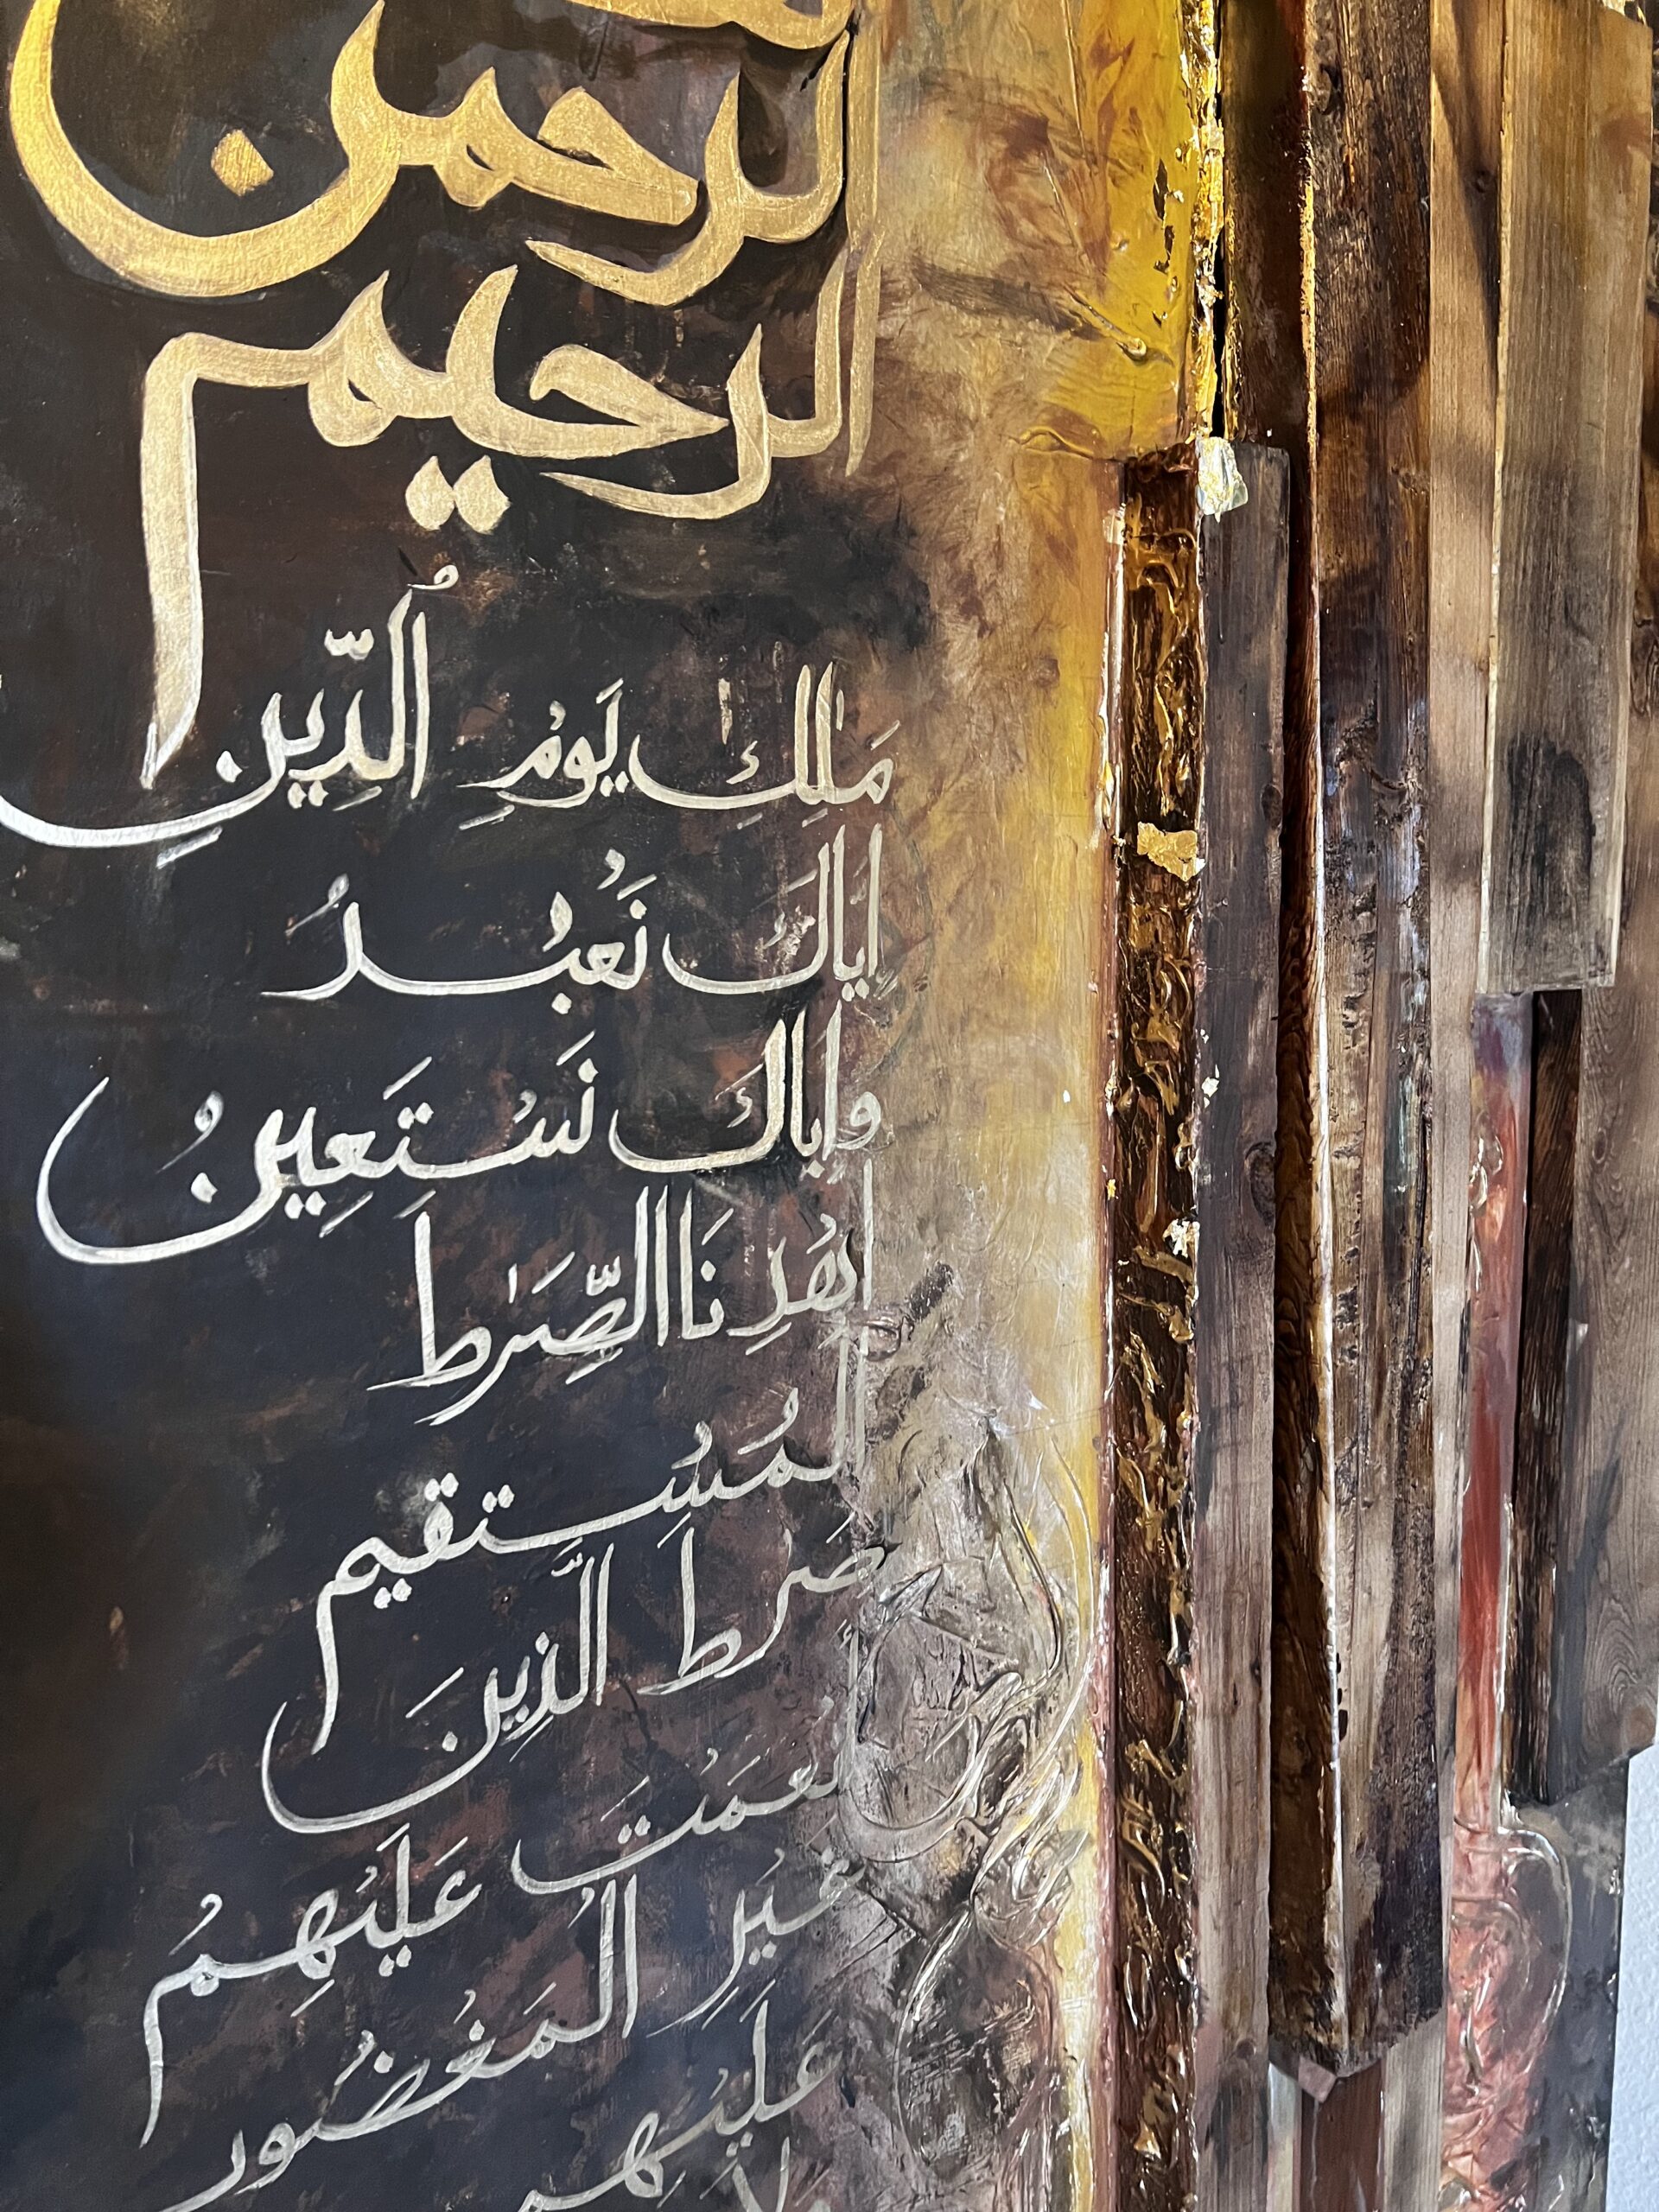 الرحمن
الرحيم
مَٰلِكِ يَوْمِ الدِّينِ
اِيَاكَ نَعْبُدُ
وإِيَاكَ نَسْتَعِينُ
اِهْدِنَا الصِّرَٰطَ
المُسْتَقيم
صِرَٰطَ الَّذِينَ
أَنعَمْتَ عَلَيْهِمْ
غَيْرِ المَغْضُور
عَلَيْهِم
ولا